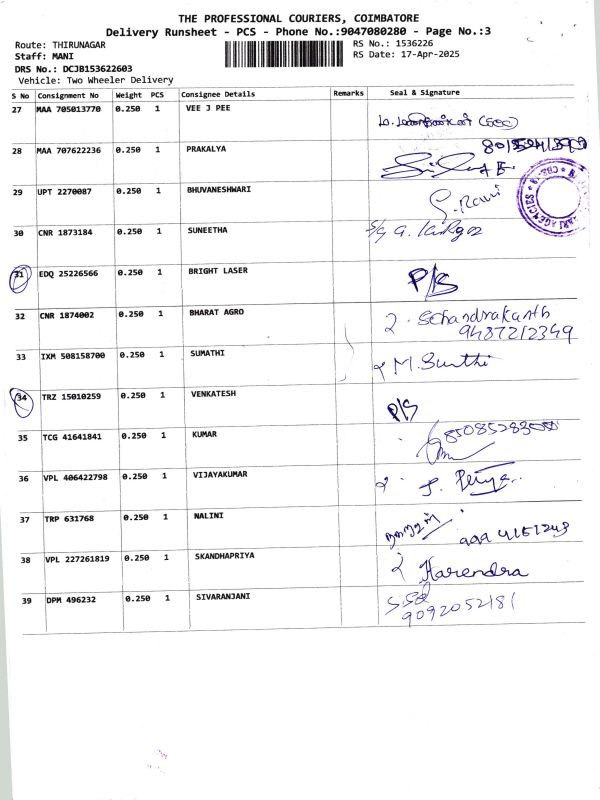 THE PROFESSIONAL COURIERS, COIMBATORE
Delivery Runsheet - PCS - Phone No.:9047080280 - Page No.:3
Route: THIRUNAGAR RS No.: 1536226
Staff: MANI RS Date: 17-Apr-2025
DRS No.: DCJB153622603
Vehicle: Two Wheeler Delivery
S No Consignment No Weight PCS Consignee Details Remarks Seal & Signature
27 MAA 705013770 0.250 1 VEE J PEE
28 MAA 707622236 0.250 1 PRAKALYA
29 UPT 2270087 0.250 1 BHUVANESHWARI G. Rani
30 CNR 1873184 0.250 1 SUNEETHA
31 EDQ 25226566 0.250 1 BRIGHT LASER P/S
32 CNR 1874002 0.250 1 BHARAT AGRO Schandrakanth
9487212349
33 IXM 508158700 0.250 1 SUMATHI M. Sunthi
34 TRZ 15010259 0.250 1 VENKATESH P/S
35 TCG 41641841 0.250 1 KUMAR
36 VPL 406422798 0.250 1 VIJAYAKUMAR J. Priya
37 TRP 631768 0.250 1 NALINI
38 VPL 227261819 0.250 1 SKANDHAPRIYA Harendra
39 DPM 496232 0.250 1 SIVARANJANI
9092052181